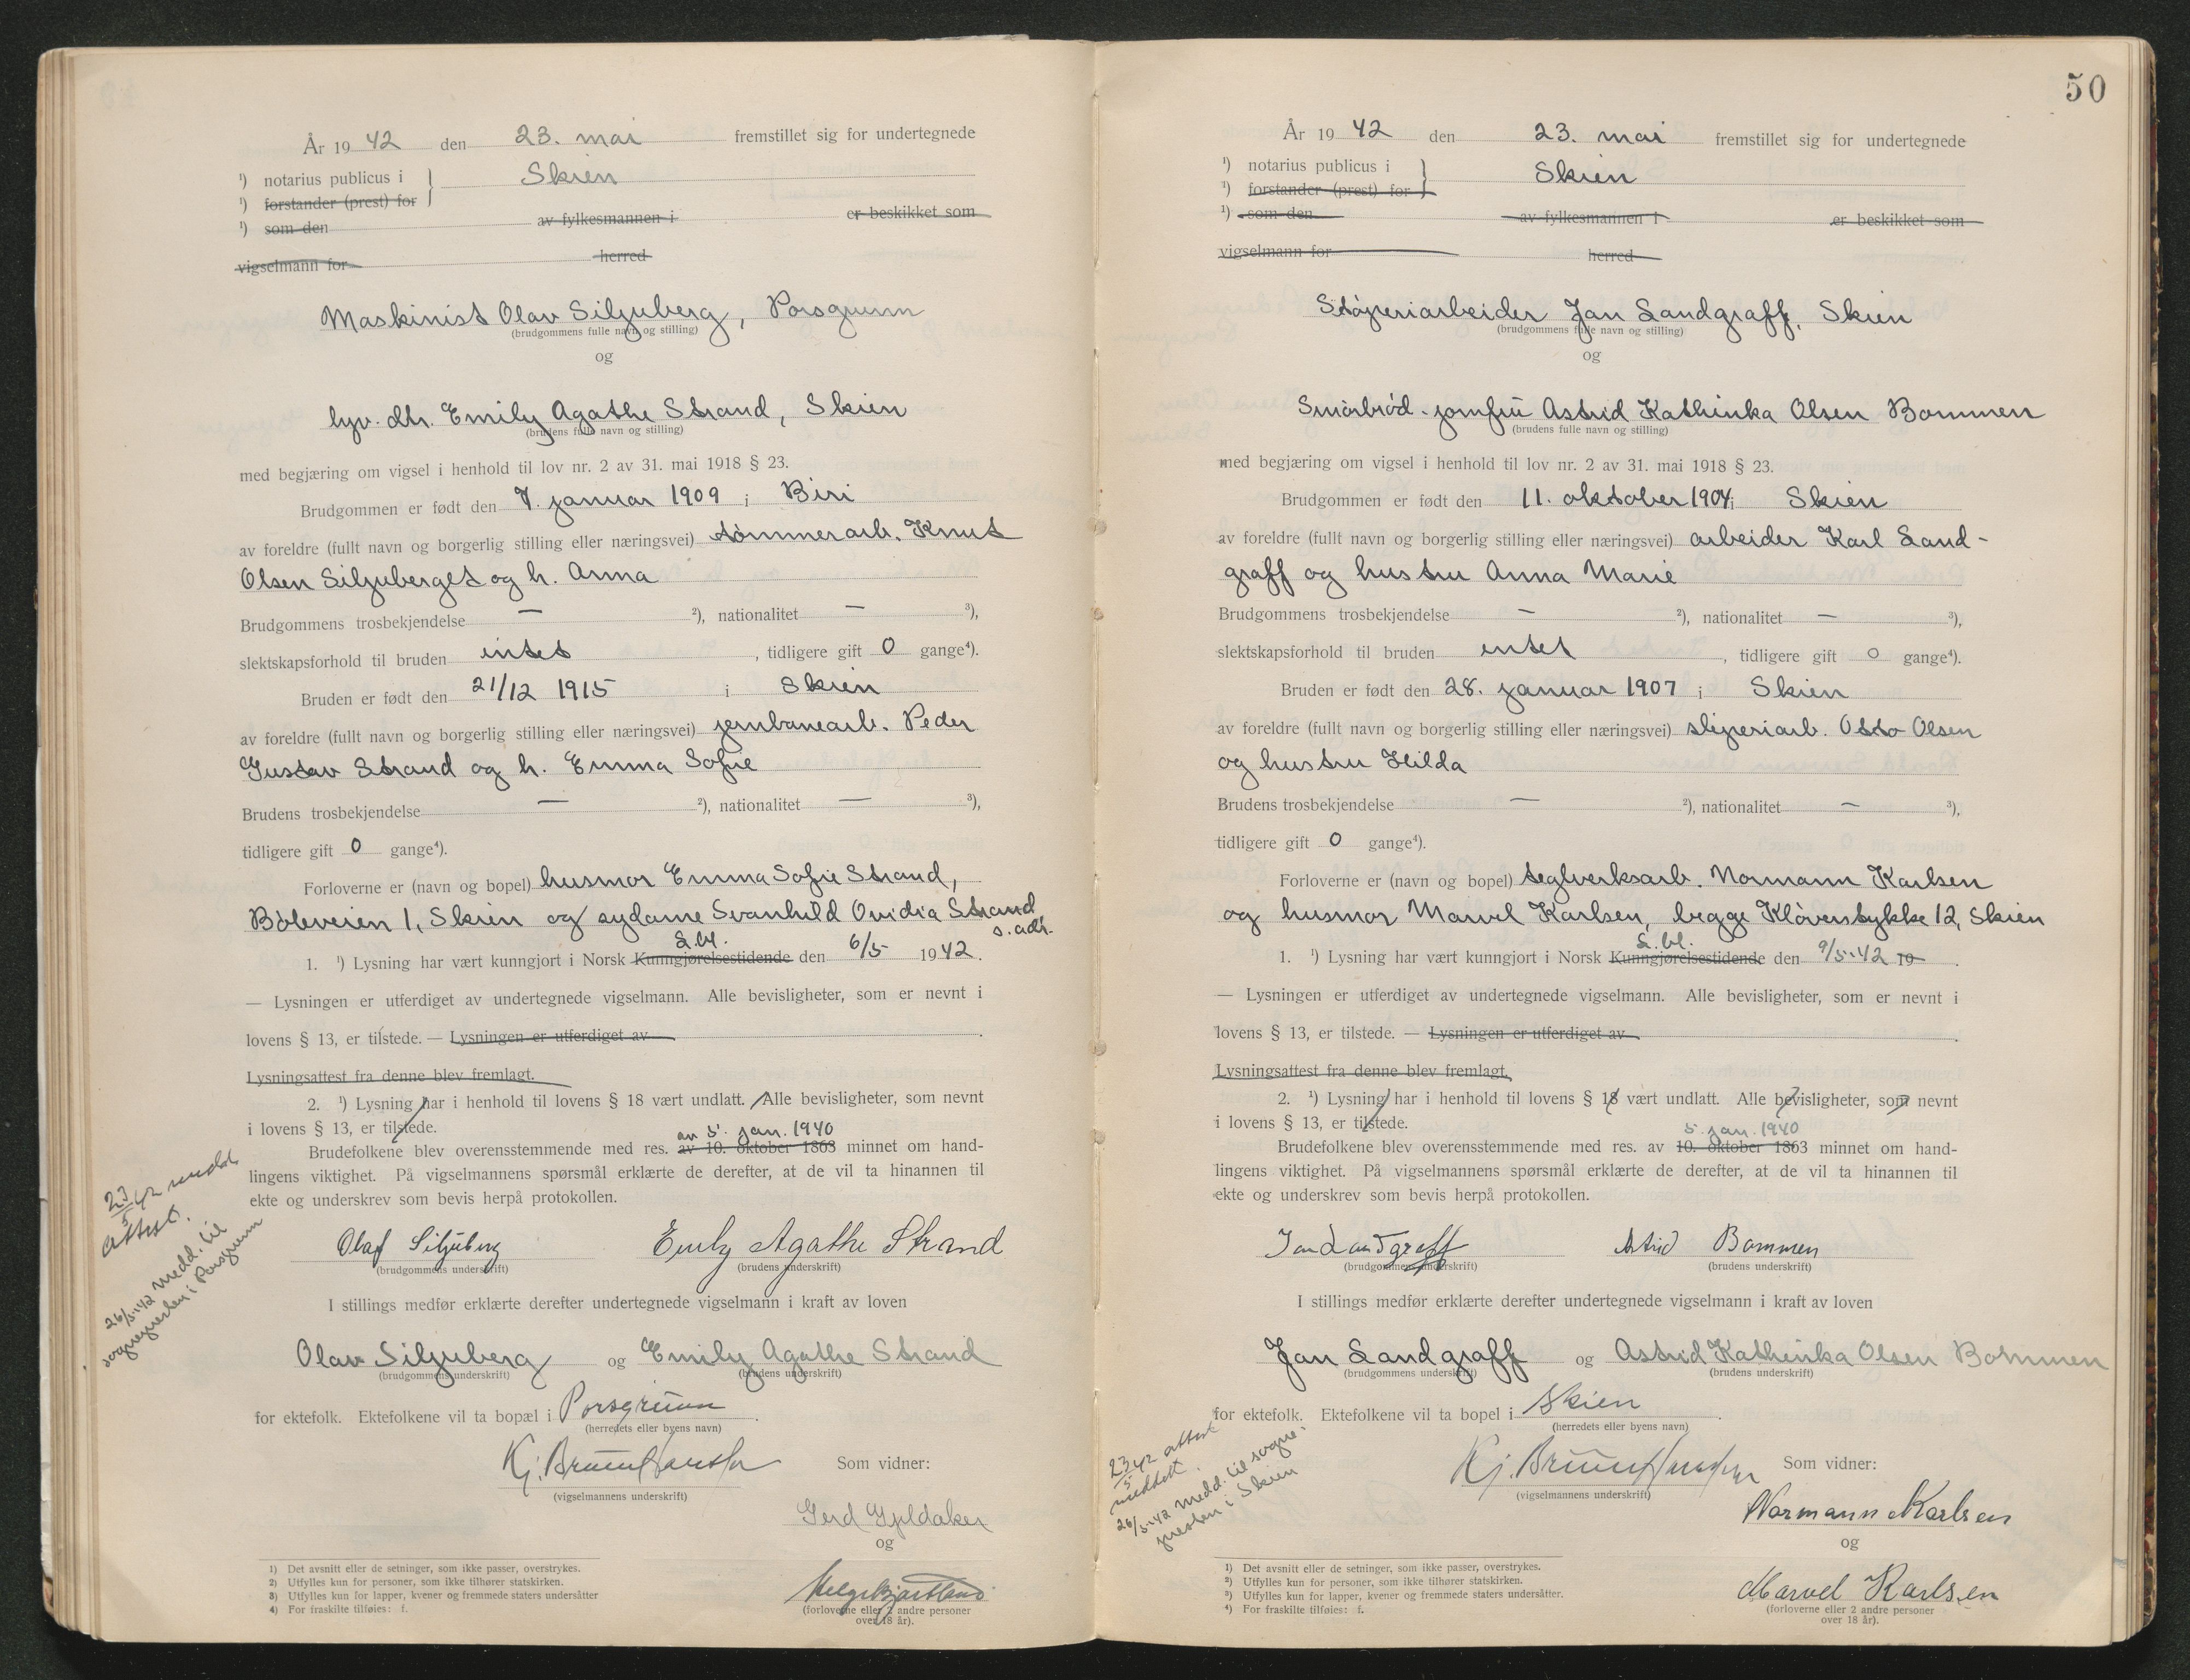 År 19 42 den 23. mai fremstillet sig for undertegnede
¹) notarius publicus i } Skien
¹) forstander (prest) for
¹) som den av fylkesmannen i er beskikket som
vigselmann for herred
Maskinist Olav Siljuberg, Porsgrunn
(brudgommens fulle navn og stilling)
og
hjv. dtr. Emily Agathe Strand, Skien
(brudens fulle navn og stilling)
med begjæring om vigsel i henhold til lov nr. 2 av 31. mai 1918 § 23.
Brudgommen er født den 7. januar 1909 i Biri
av foreldre (fullt navn og borgerlig stilling eller næringsvei) tømmerarb. Knut
Olsen Siljuberget og h. Anna
Brudgommens trosbekjendelse — ²), nationalitet — ³),
slektskapsforhold til bruden intet , tidligere gift 0 gange⁴).
Bruden er født den 21/12 1915 i Skien
av foreldre (fullt navn og borgerlig stilling eller næringsvei) jernbanearb. Peder
Gustav Strand og h. Emma Sofie
Brudens trosbekjendelse — ²), nationalitet — ³),
tidligere gift 0 gange⁴).
Forloverne er (navn og bopel) husmor Emma Sofie Strand,
Böleveien 1, Skien og sydame Svanhild Ovidia Strand
s. adr.
L.bl.
1. ¹) Lysning har vært kunngjort i Norsk Kunngjørelsestidende den 6/5 1942.
— Lysningen er utferdiget av undertegnede vigselmann. Alle bevisligheter, som er nevnt i
lovens § 13, er tilstede. — Lysningen er utferdiget av .
Lysningsattest fra denne blev fremlagt.
2. ¹) Lysning har i henhold til lovens § 18 vært undlatt. Alle bevisligheter, som nevnt
i lovens § 13, er tilstede.
av 5. jan. 1940
Brudefolkene blev overensstemmende med res. av 10. oktober 1863 minnet om hand-
lingens viktighet. På vigselmannens spørsmål erklærte de derefter, at de vil ta hinannen til
ekte og underskrev som bevis herpå protokollen.
23/5 42 meddt
attest.
26/5-42 medd. til
sognepresten i Porsgrunn
Olaf Siljuberg Emily Agathe Strand
(brudgommens underskrift) (brudens underskrift)
I stillings medfør erklærte derefter undertegnede vigselmann i kraft av loven
Olav Siljuberg og Emily Agathe Strand
(brudgommens underskrift) (brudens underskrift)
for ektefolk. Ektefolkene vil ta bopæl i Porsgrunn .
(herredets eller byens navn)
Kj. Bruun Hansen Som vidner:
(vigselmannens underskrift)
Gerd
og
(forloverne eller 2 andre personer
over 18 år).
1) Det avsnitt eller de setninger, som ikke passer, overstrykes.
2) Utfylles kun for personer, som ikke tilhører statskirken.
3) Utfylles kun for lapper, kvener og fremmede staters undersåtter
4) For fraskilte tilføies: f.
50
År 19 42 den 23. mai fremstillet sig for undertegnede
¹) notarius publicus i } Skien
¹) forstander (prest) for
¹) som den av fylkesmannen i er beskikket som
vigselmann for herred
Støperiarbeider Jan Landgraff, Skien
(brudgommens fulle navn og stilling)
og
Smörbröd-jomfru Astrid Kathinka Olsen Bommen
(brudens fulle navn og stilling)
med begjæring om vigsel i henhold til lov nr. 2 av 31. mai 1918 § 23.
Brudgommen er født den 11. oktober 1904 i Skien
av foreldre (fullt navn og borgerlig stilling eller næringsvei) arbeider Karl Land-
graff og hustru Anna Marie
Brudgommens trosbekjendelse — ²), nationalitet — ³),
slektskapsforhold til bruden intet , tidligere gift 0 gange⁴).
Bruden er født den 28. januar 1907 i Skien
av foreldre (fullt navn og borgerlig stilling eller næringsvei) sliperiarb. Otto Olsen
og hustru Hilda
Brudens trosbekjendelse — ²), nationalitet — ³),
tidligere gift 0 gange⁴).
Forloverne er (navn og bopel) teglverksarb. Normann Karlsen
og husmor Marvel Karlsen, begge Klöverstykke 12, Skien
L.bl.
1. ¹) Lysning har vært kunngjort i Norsk Kunngjørelsestidende den 9/5-42 19 .
— Lysningen er utferdiget av undertegnede vigselmann. Alle bevisligheter, som er nevnt i
lovens § 13, er tilstede. — Lysningen er utferdiget av .
Lysningsattest fra denne blev fremlagt.
2. ¹) Lysning har i henhold til lovens § 18 vært undlatt. Alle bevisligheter, som nevnt
i lovens § 13, er tilstede.
5. jan. 1940
Brudefolkene blev overensstemmende med res. av 10. oktober 1863 minnet om hand-
lingens viktighet. På vigselmannens spørsmål erklærte de derefter, at de vil ta hinannen til
ekte og underskrev som bevis herpå protokollen.
Jan Landgraff Astrid Bommen
(brudgommens underskrift) (brudens underskrift)
I stillings medfør erklærte derefter undertegnede vigselmann i kraft av loven
Jan Landgraff og Astrid Kathinka Olsen Bommen
(brudgommens underskrift) (brudens underskrift)
for ektefolk. Ektefolkene vil ta bopel i Skien .
(herredets eller byens navn)
23/5 42 attest
meddelt.
26/5-42 medd. til sogne-
presten i Skien
Kj. Bruun Hansen Som vidner:
(vigselmannens underskrift)
Normann Karlsen
og
Marvel Karlsen
(forloverne eller 2 andre personer
over 18 år).
1) Det avsnitt eller de setninger, som ikke passer, overstrykes.
2) Utfylles kun for personer, som ikke tilhører statskirken.
3) Utfylles kun for lapper, kvener og fremmede staters undersåtter.
4) For fraskilte tilføies: f.